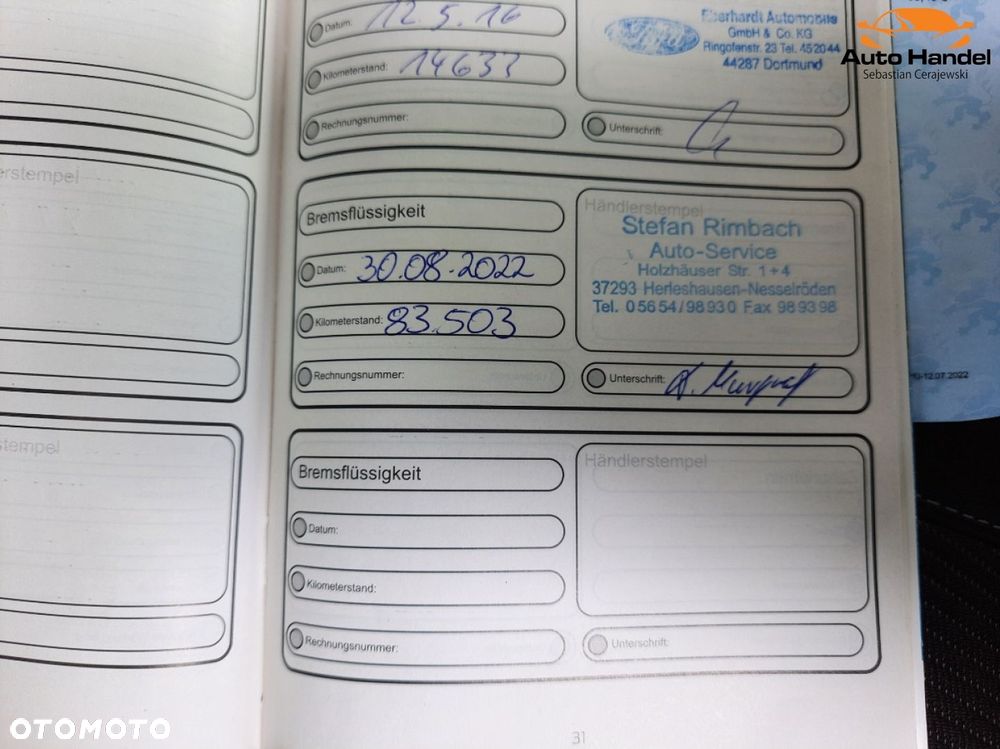 Datum: 12.5.16
Kilometerstand: 14637
Rechnungsnummer:
Eberhardt Automobile
GmbH & Co. KG
Ringofenstr. 23 Tel. 452044
44287 Dortmund
Unterschrift:
Auto Handel
Sebastian Cerajewski
erstempel
Bremsflüssigkeit
Datum: 30.08.2022
Kilometerstand: 83.503
Rechnungsnummer:
Händlerstempel
Stefan Rimbach
Auto-Service
Holzhäuser Str. 1+4
37293 Herleshausen-Nesselröden
Tel. 05654/98930 Fax 989398
Unterschrift:
12.07.2022
stempel
Bremsflüssigkeit
Datum:
Kilometerstand:
Rechnungsnummer:
Händlerstempel
Unterschrift:
31
OTOMOTO